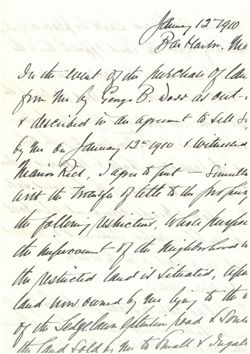 January 12th 1910
Bar Harbor. Me
In the event of the purchase of la
from me by George B. Dorr as out-
& described in an agreement to sell si
by me on January 12th 1910 & witnessed
Marion Reid, I agree to put – Simul
with the transfer of title to the proper
the following restrictions, whose purpose
the improvement of the neighborhood in
the restricted land is situated, upo
land now owned by me lying to the
of the road & Sou
the land sold by me to Small &